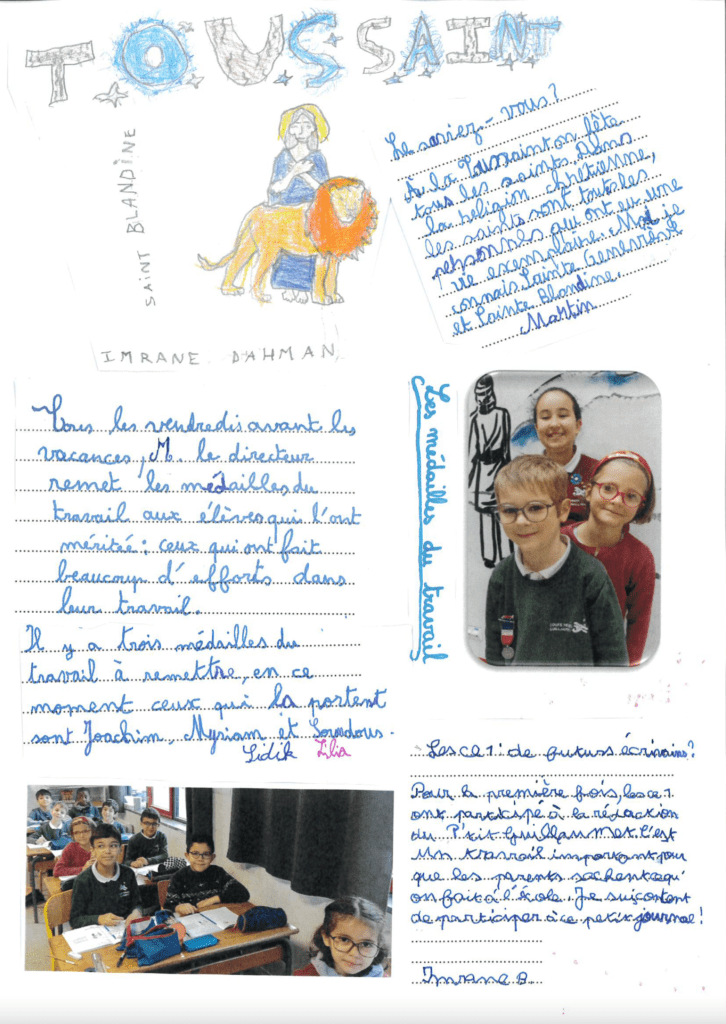 TOUSSAINT
SAINT BLANDINE
IMRANE DAHMAN
Le saviez-vous?
À la Toussaint on fête
tous les saints. Dans
la religion chrétienne,
les saints sont toutes les
personnes qui ont eu une
vie exemplaire. Moi je
connais Sainte Geneviève
et Sainte Blandine.
Martin
Tous les vendredis avant les
vacances, M. le directeur
remet les médailles du
travail aux élèves qui l'ont
méritée : ceux qui ont fait
beaucoup d'efforts dans
leur travail.
Il y a trois médailles du
travail à remettre, en ce
moment ceux qui la portent
sont Joachim, Myriam et
Sidik Lilia
Les médailles du travail
Les ce1 : de futurs écrivains?
Pour la première fois, les ce1
ont participé à la rédaction
du P'tit Guillaumet. C'est
un travail important pour
que les parents sachent ce qu'
on fait à l'école. Je suis content
de participer à ce petit journal!
Imrane B.